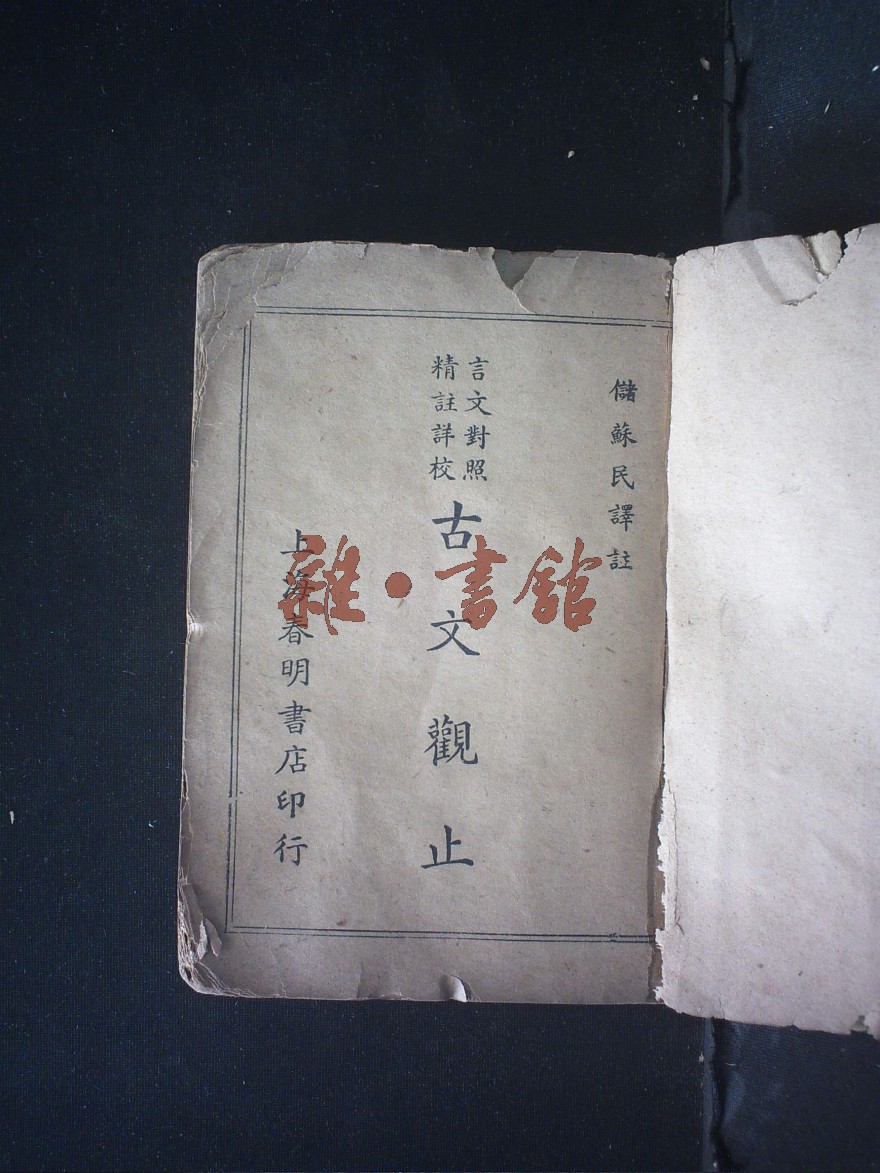 儲蘇民譯註
言文對照
精註詳校
古文觀止
上海春明書店印行
雜·書館